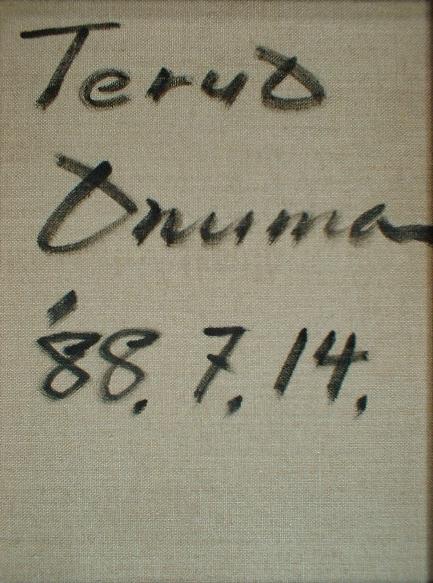 Teruo
Onuma
'88. 7. 14.